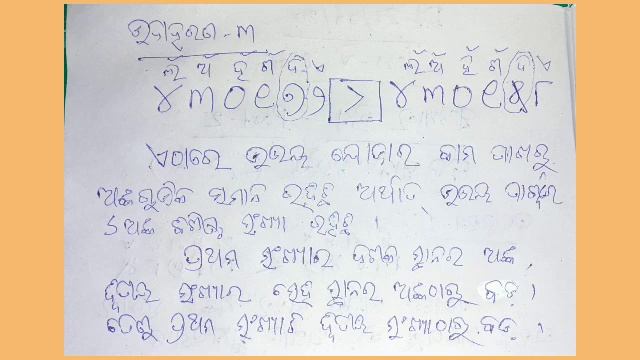 ଉଦାହରଣ - ୩
ଲଁ ଅଁ ହଁ ଶଁ ଦଁ ଏ ଲଁ ଅଁ ହଁ ଶଁ ଦଁ ଏ
୪୩୦୯୭୨ > ୪୩୦୯୫୮
ଏଠାରେ ଉଭୟ ଯୋଡ଼ାର ବାମ ପାଖରୁ
ଅଙ୍କଗୁଡିକ ସମାନ ରହିଛି ଅର୍ଥାତ୍ ଉଭୟ ପାଖରେ
୬ ଅଙ୍କ ବିଶିଷ୍ଟ ସଂଖ୍ୟା ରହିଛି ।
ପ୍ରଥମ ସଂଖ୍ୟାର ଦଶକ ସ୍ଥାନର ଅଙ୍କ,
ଦ୍ୱିତୀୟ ସଂଖ୍ୟାର ସେହି ସ୍ଥାନର ଅଙ୍କଠାରୁ ବଡ଼ ।
ତେଣୁ ପ୍ରଥମ ସଂଖ୍ୟାଟି ଦ୍ୱିତୀୟ ସଂଖ୍ୟାଠାରୁ ବଡ଼ ।